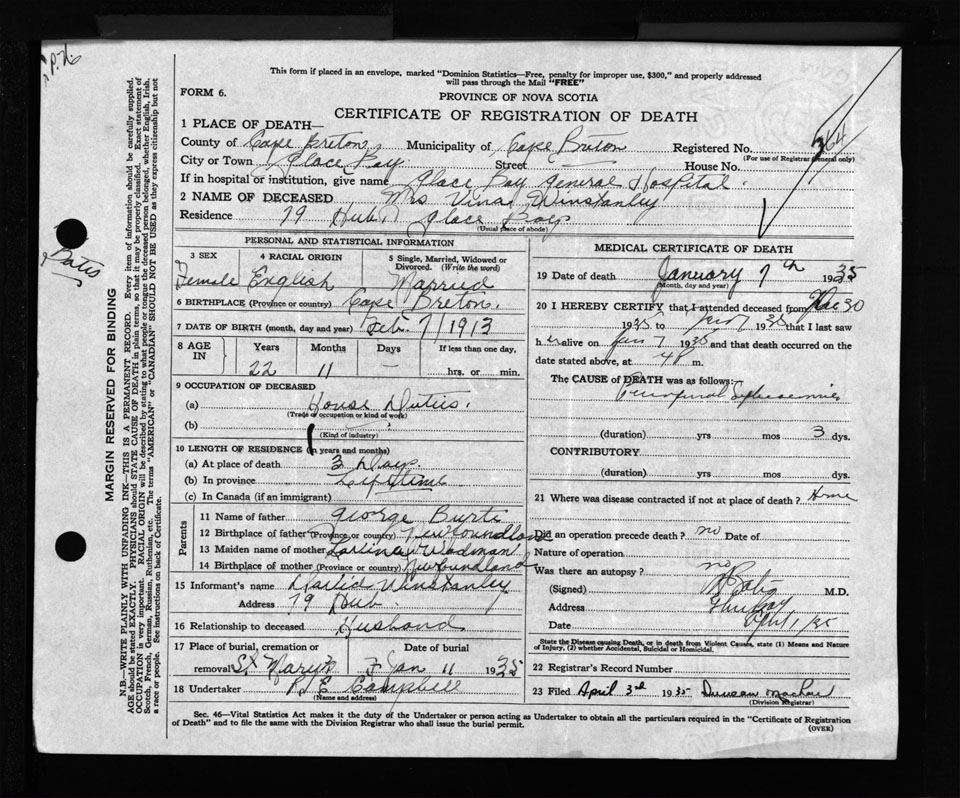 P.76
This form if placed in an envelope, marked "Dominion Statistics—Free, penalty for improper use, $300," and properly addressed
will pass through the Mail "FREE"
FORM 6.
PROVINCE OF NOVA SCOTIA
CERTIFICATE OF REGISTRATION OF DEATH
1 PLACE OF DEATH—
County of Cape Breton. Municipality of Cape Breton Registered No. 364
(For use of Registrar General only)
City or Town Glace Bay Street House No.
If in hospital or institution, give name Glace Bay General Hospital.
2 NAME OF DECEASED Mrs Vina Winstanley
Residence 79 Hub. Glace Bay
(Usual place of abode)
PERSONAL AND STATISTICAL INFORMATION
3 SEX Female
4 RACIAL ORIGIN English
5 Single, Married, Widowed or
Divorced. (Write the word)
Married
6 BIRTHPLACE (Province or country) Cape Breton.
7 DATE OF BIRTH (month, day and year) Feb. 7/1913
8 AGE
IN
Years 22
Months 11
Days —
If less than one day,
hrs. or min.
9 OCCUPATION OF DECEASED
(a) House Duties.
(Trade or occupation or kind of work)
(b)
(Kind of industry)
10 LENGTH OF RESIDENCE (in years and months)
(a) At place of death 3 Days.
(b) In province Lifetime
(c) In Canada (if an immigrant)
Parents
11 Name of father George Burt
12 Birthplace of father (Province, or country) Newfoundland
13 Maiden name of mother Wadman
14 Birthplace of mother (Province or country) Newfoundland
15 Informant's name Winstanley
Address 79 Hub.
16 Relationship to deceased Husband
17 Place of burial, cremation or Date of burial
removal St Mary's Jan 11 1935
18 Undertaker Campbell
(Name and address)
MEDICAL CERTIFICATE OF DEATH
19 Date of death January 7th 1935
(Month, day and year)
20 I HEREBY CERTIFY that I attended deceased from 30
193 to 1935 that I last saw
h er alive on Jan 7 1935 and that death occurred on the
date stated above, at m.
The CAUSE of DEATH was as follows:
Puerperal Septicaemia
(duration) yrs mos 3 dys.
CONTRIBUTORY
(duration) yrs mos dys.
21 Where was disease contracted if not at place of death? Home
Did an operation precede death? no Date of
Nature of operation
Was there an autopsy? no
(Signed) M.D.
Address
Date April 1/35
State the Disease causing Death, or in death from Violent Causes, state (1) Means and Nature
of Injury, (2) whether Accidental, Suicidal or Homicidal.
22 Registrar's Record Number
23 Filed April 3rd 1935 Duncan
(Division Registrar)
Sec. 46—Vital Statistics Act makes it the duty of the Undertaker or person acting as Undertaker to obtain all the particulars required in the "Certificate of Registration
of Death" and to file the same with the Division Registrar who shall issue the burial permit.
(OVER)
MARGIN RESERVED FOR BINDING
N.B.—WRITE PLAINLY WITH UNFADING INK—THIS IS A PERMANENT RECORD. Every item of information should be carefully supplied.
AGE should be stated EXACTLY. PHYSICIANS should STATE CAUSE OF DEATH in plain terms, so that it may be properly classified. Exact statement of
OCCUPATION is very important. RACIAL ORIGIN will be described by stating to what people or tongue the deceased person belonged, whether English, Irish,
Scotch, French, German, Russian, Ruthenian, etc. The terms "AMERICAN" or "CANADIAN" SHOULD NOT BE USED as they express citizenship but not
a race or people. See instructions on back of Certificate.